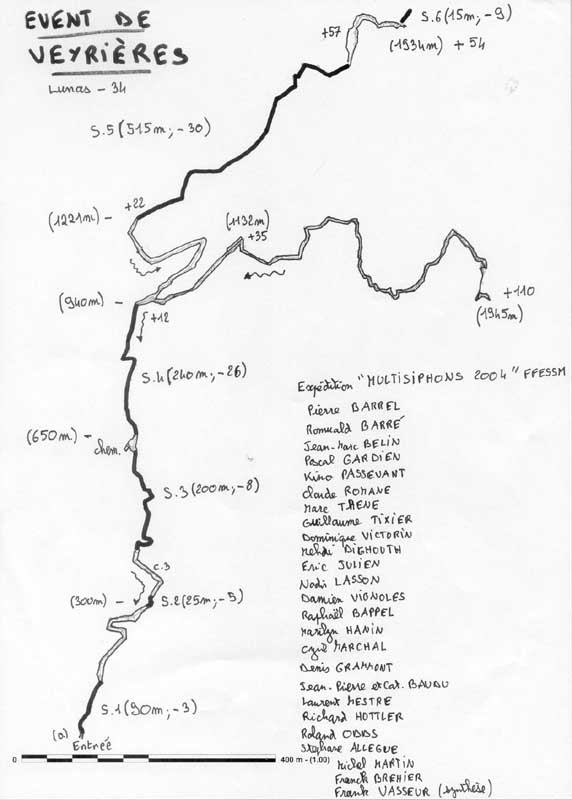 EVENT DE
VEYRIÈRES
Lunas - 34
S.6 (15m; -9)
+57
(1934m) + 54
S.5 (515m; -30)
+22
(1221m) -
(1132m)
+35
(940m) -
+12
+110
(1945m)
S.4 (240m; -26)
(650m) -
chem.
S.3 (200m; -8)
c.3
(300m) -
S.2 (25m; -5)
S.1 (90m; -3)
(0)
Entrée
0
400 m - (1.00)
Expédition "MULTISIPHONS 2004" FFESSM
Pierre BARREL
Romuald BARRÉ
Jean-Marc BELIN
Pascal GARDIEN
Kino PASSEVANT
Claude ROMANE
Marc THENE
Guillaume TIXIER
Dominique VICTORIN
Mehdi DIGHOUTH
Eric JULIEN
Nadi LASSON
Damien VIGNOLES
Raphaël BAPPEL
Marilyn HANIN
Cyril MARCHAL
Denis GRAMMONT
Jean-Pierre et Cat. BAUDU
Laurent MESTRE
Richard HOTTLER
Roland ODDS
Stéphane ALLEGUE
Michel MARTIN
Franck BREHIER
Frank VASSEUR (synthèse)